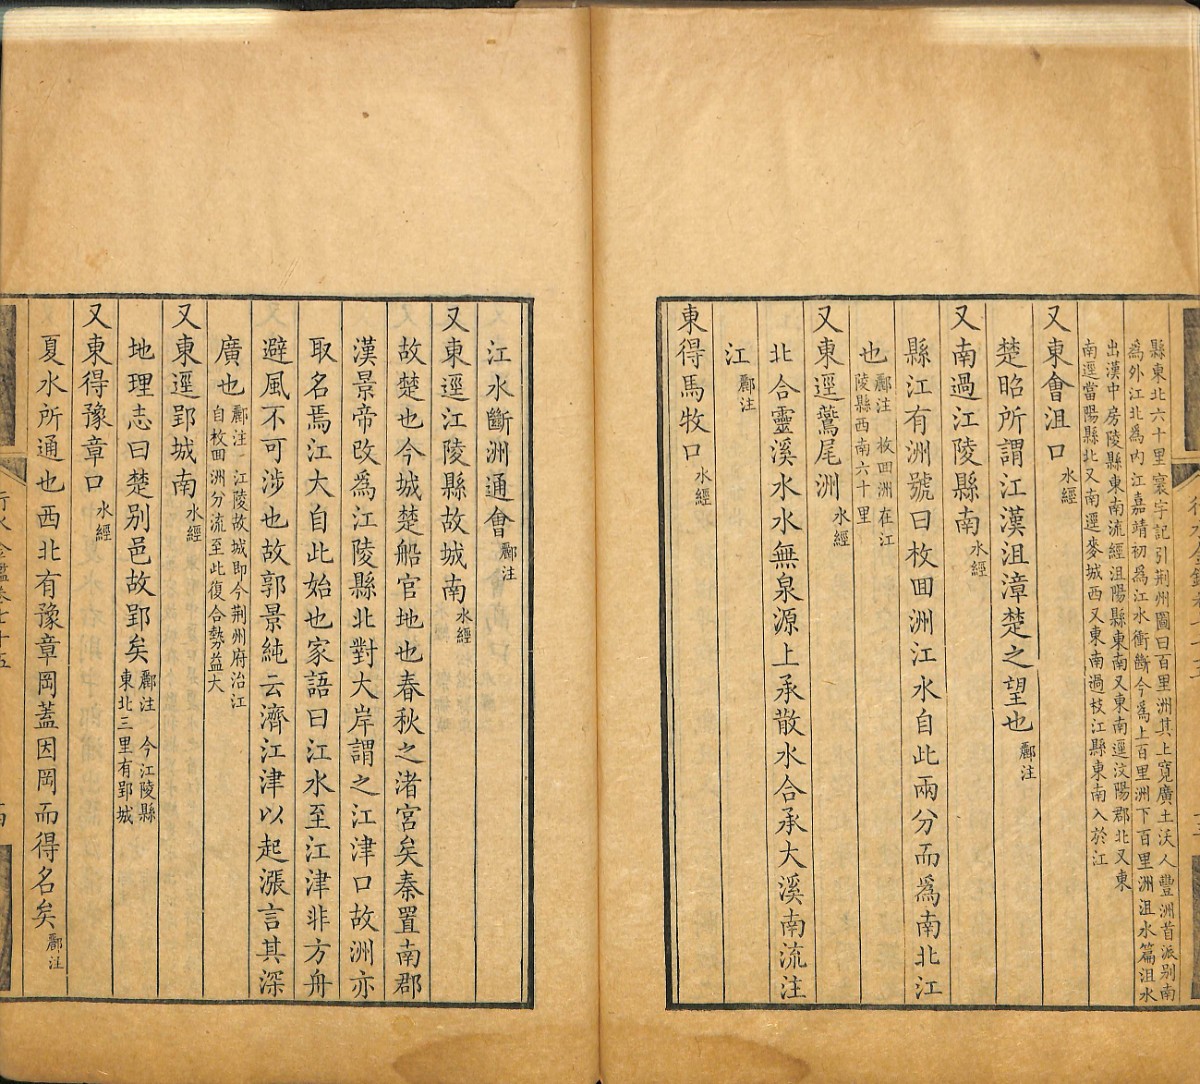 縣東北六十里寰宇記引荆州圖曰百里洲其上寬廣土沃人豐洲首派别南
為外江北為内江嘉靖初爲江水衝斷今爲上百里洲下百里洲沮水篇沮水
出漢中房陵縣東南流經沮陽縣東南又東南逕汶陽郡北又東
南逕當陽縣北又南逕麥城西又東南過枝江縣東南入於江
又東會沮口水經
楚昭所謂江漢沮漳楚之望也酈注
又南過江陵縣南水經
縣江有洲號曰枚囬洲江水自此兩分而爲南北江
也酈注 枚囬洲在江
陵縣西南六十里
又東逕鷰尾洲水經
北合靈溪水水無泉源上承散水合承大溪南流注
江酈注
東得馬牧口水經
江水斷洲通會酈注
又東逕江陵縣故城南水經
故楚也今城楚船官地也春秋之渚宮矣秦置南郡
漢景帝改爲江陵縣北對大岸謂之江津口故洲亦
取名焉江大自此始也家語曰江水至江津非方舟
避風不可涉也故郭景純云濟江津以起漲言其深
廣也酈注 江陵故城即今荆州府治江
自枚囬洲分流至此復合勢益大
又東逕郢城南水經
地理志曰楚别邑故郢矣酈注 今江陵縣
東北三里有郢城
又東得豫章口水經
夏水所通也西北有豫章岡蓋因岡而得名矣酈注